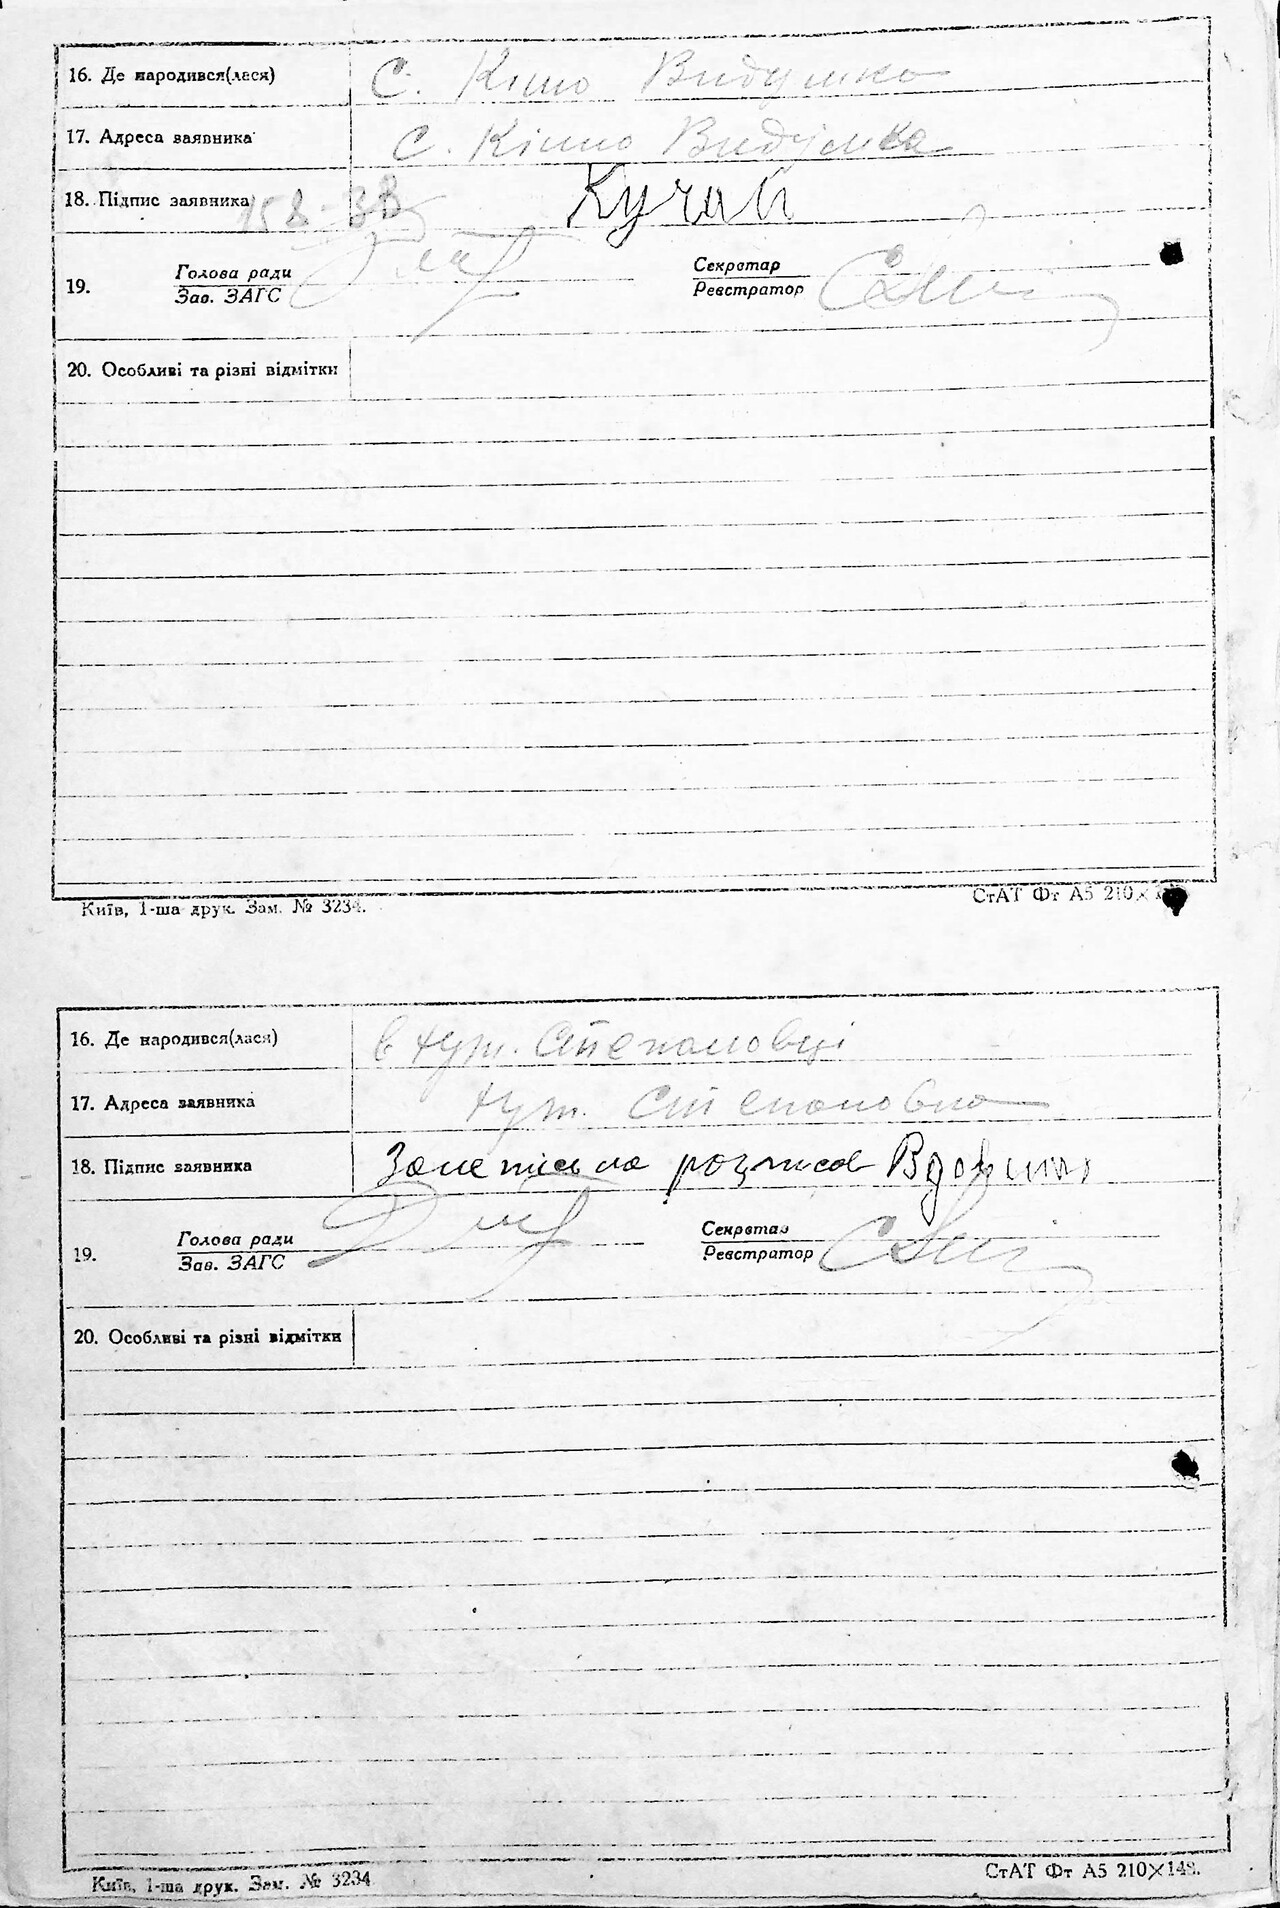 16. Де народився(лася) с. Кішо Видумка
17. Адреса заявника с. Кішо Видумка
18. Підпис заявника Кучай
19. Голова ради Секретар
Зав. ЗАГС Реєстратор
20. Особливі та різні відмітки
Київ, 1-ша друк. Зам. № 3234. СтАТ Фт А5 210×
16. Де народився(лася) в хут. Степановці
17. Адреса заявника хут. Степановка
18. Підпис заявника розписав
19. Голова ради Секретар
Зав. ЗАГС Реєстратор
20. Особливі та різні відмітки
Київ, 1-ша друк. Зам. № 3234 СтАТ Фт А5 210×148.